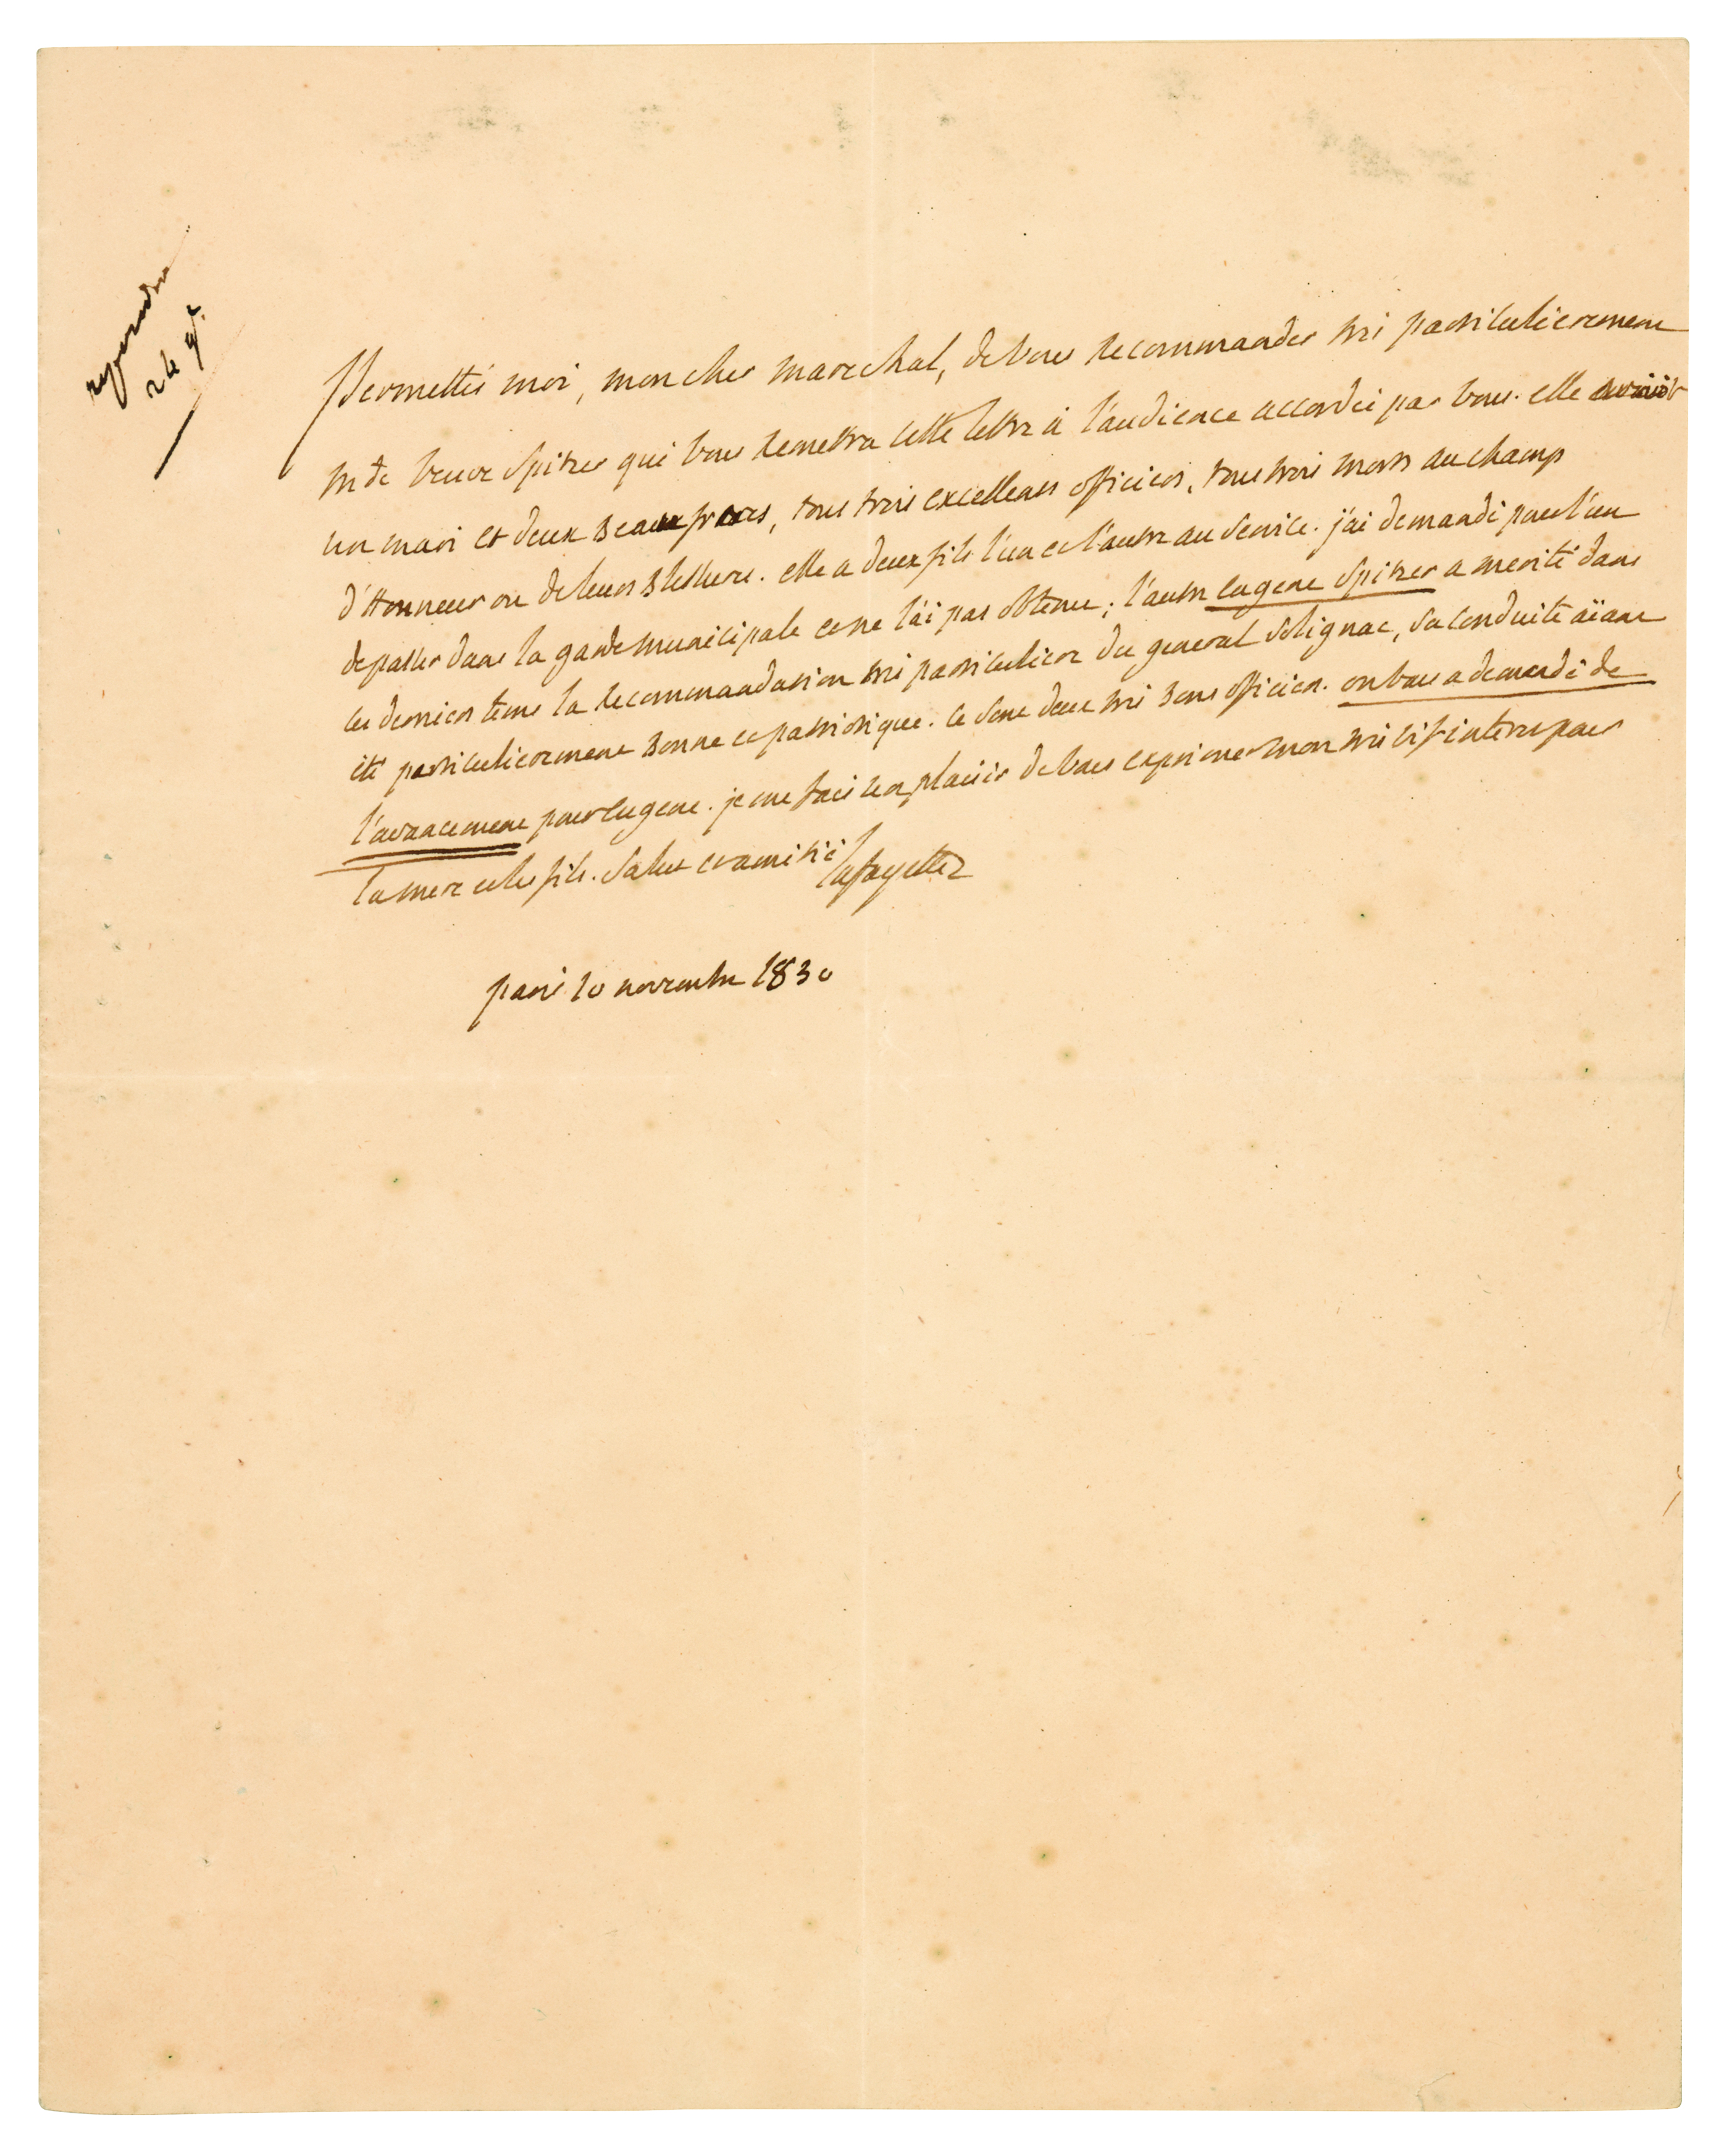 repondu
24 9e
Permettés moi, mon cher marechal, de vous recommander très particulierement
mde veuve Spitzer qui vous remettra cette lettre à l'audience accordée par vous. elle avait
un mari et deux beaux freres, tous trois excellens officiers, tous trois morts au champ
d'Honneur ou de leurs blessures. elle a deux fils l'un et l'autre au service. j'ai demandé pour l'un
de passer dans la garde municipale et ne l'ai pas obtenu; l'autre eugene Spitzer a merité dans
ces derniers tems la recommandation très particuliere du general Solignac, sa conduite aïant
eté particulierement bonne et patriotique. ce sont deux très bons officiers. on vous a demandé de
l'avancement pour eugene. je me fais un plaisir de vous exprimer mon très vif interet pour
la mere et les fils. Salut et amitié
Lafayette
paris 10 novembre 1830